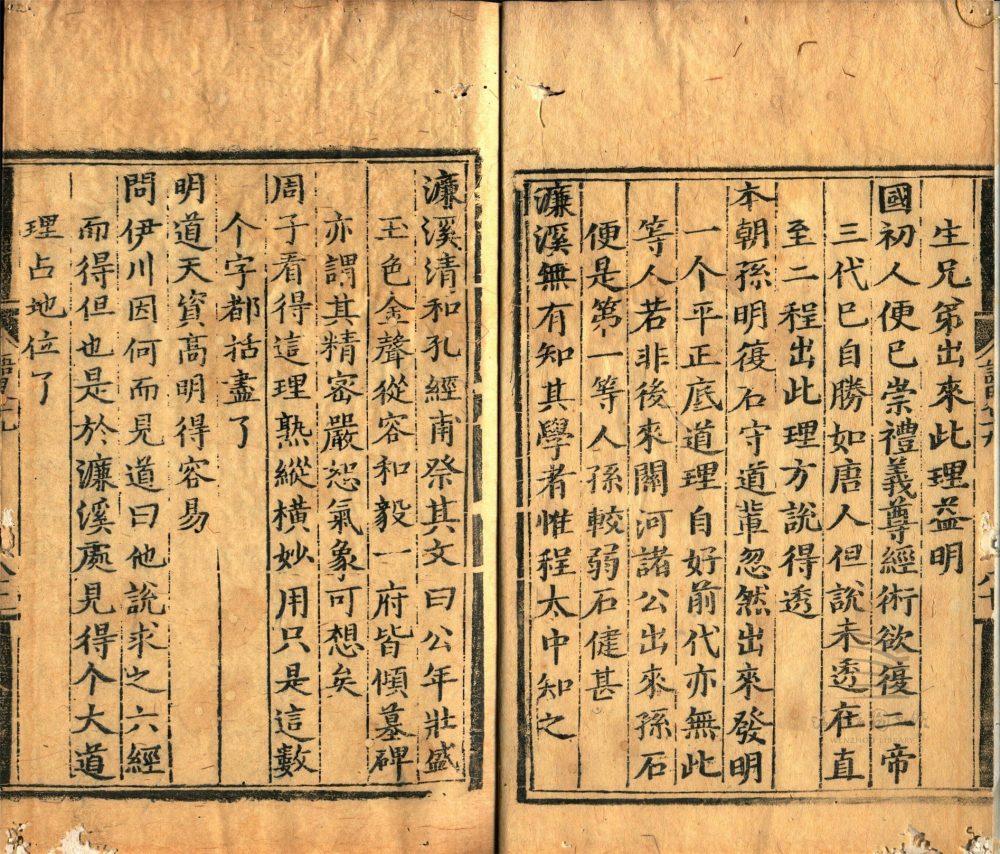 生兄弟出來此理益明
國初人便已崇禮義尊經術欲復二帝
三代已自勝如唐人但說未透在直
至二程出此理方說得透
本朝孫明復石守道輩忽然出來發明
一个平正底道理自好前代亦無此
等人若非後來關河諸公出來孫石
便是第一等人孫較弱石健甚
濂溪無有知其學者惟程太中知之
濂溪清和孔經甫祭其文曰公年壯盛
玉色金聲從容和毅一府皆傾墓碑
亦謂其精密嚴恕氣象可想矣
周子看得這理熟縱橫妙用只是這數
个字都括盡了
明道天資高明得容易
問伊川因何而見道曰他說求之六經
而得但也是於濂溪處見得个大道
理占地位了